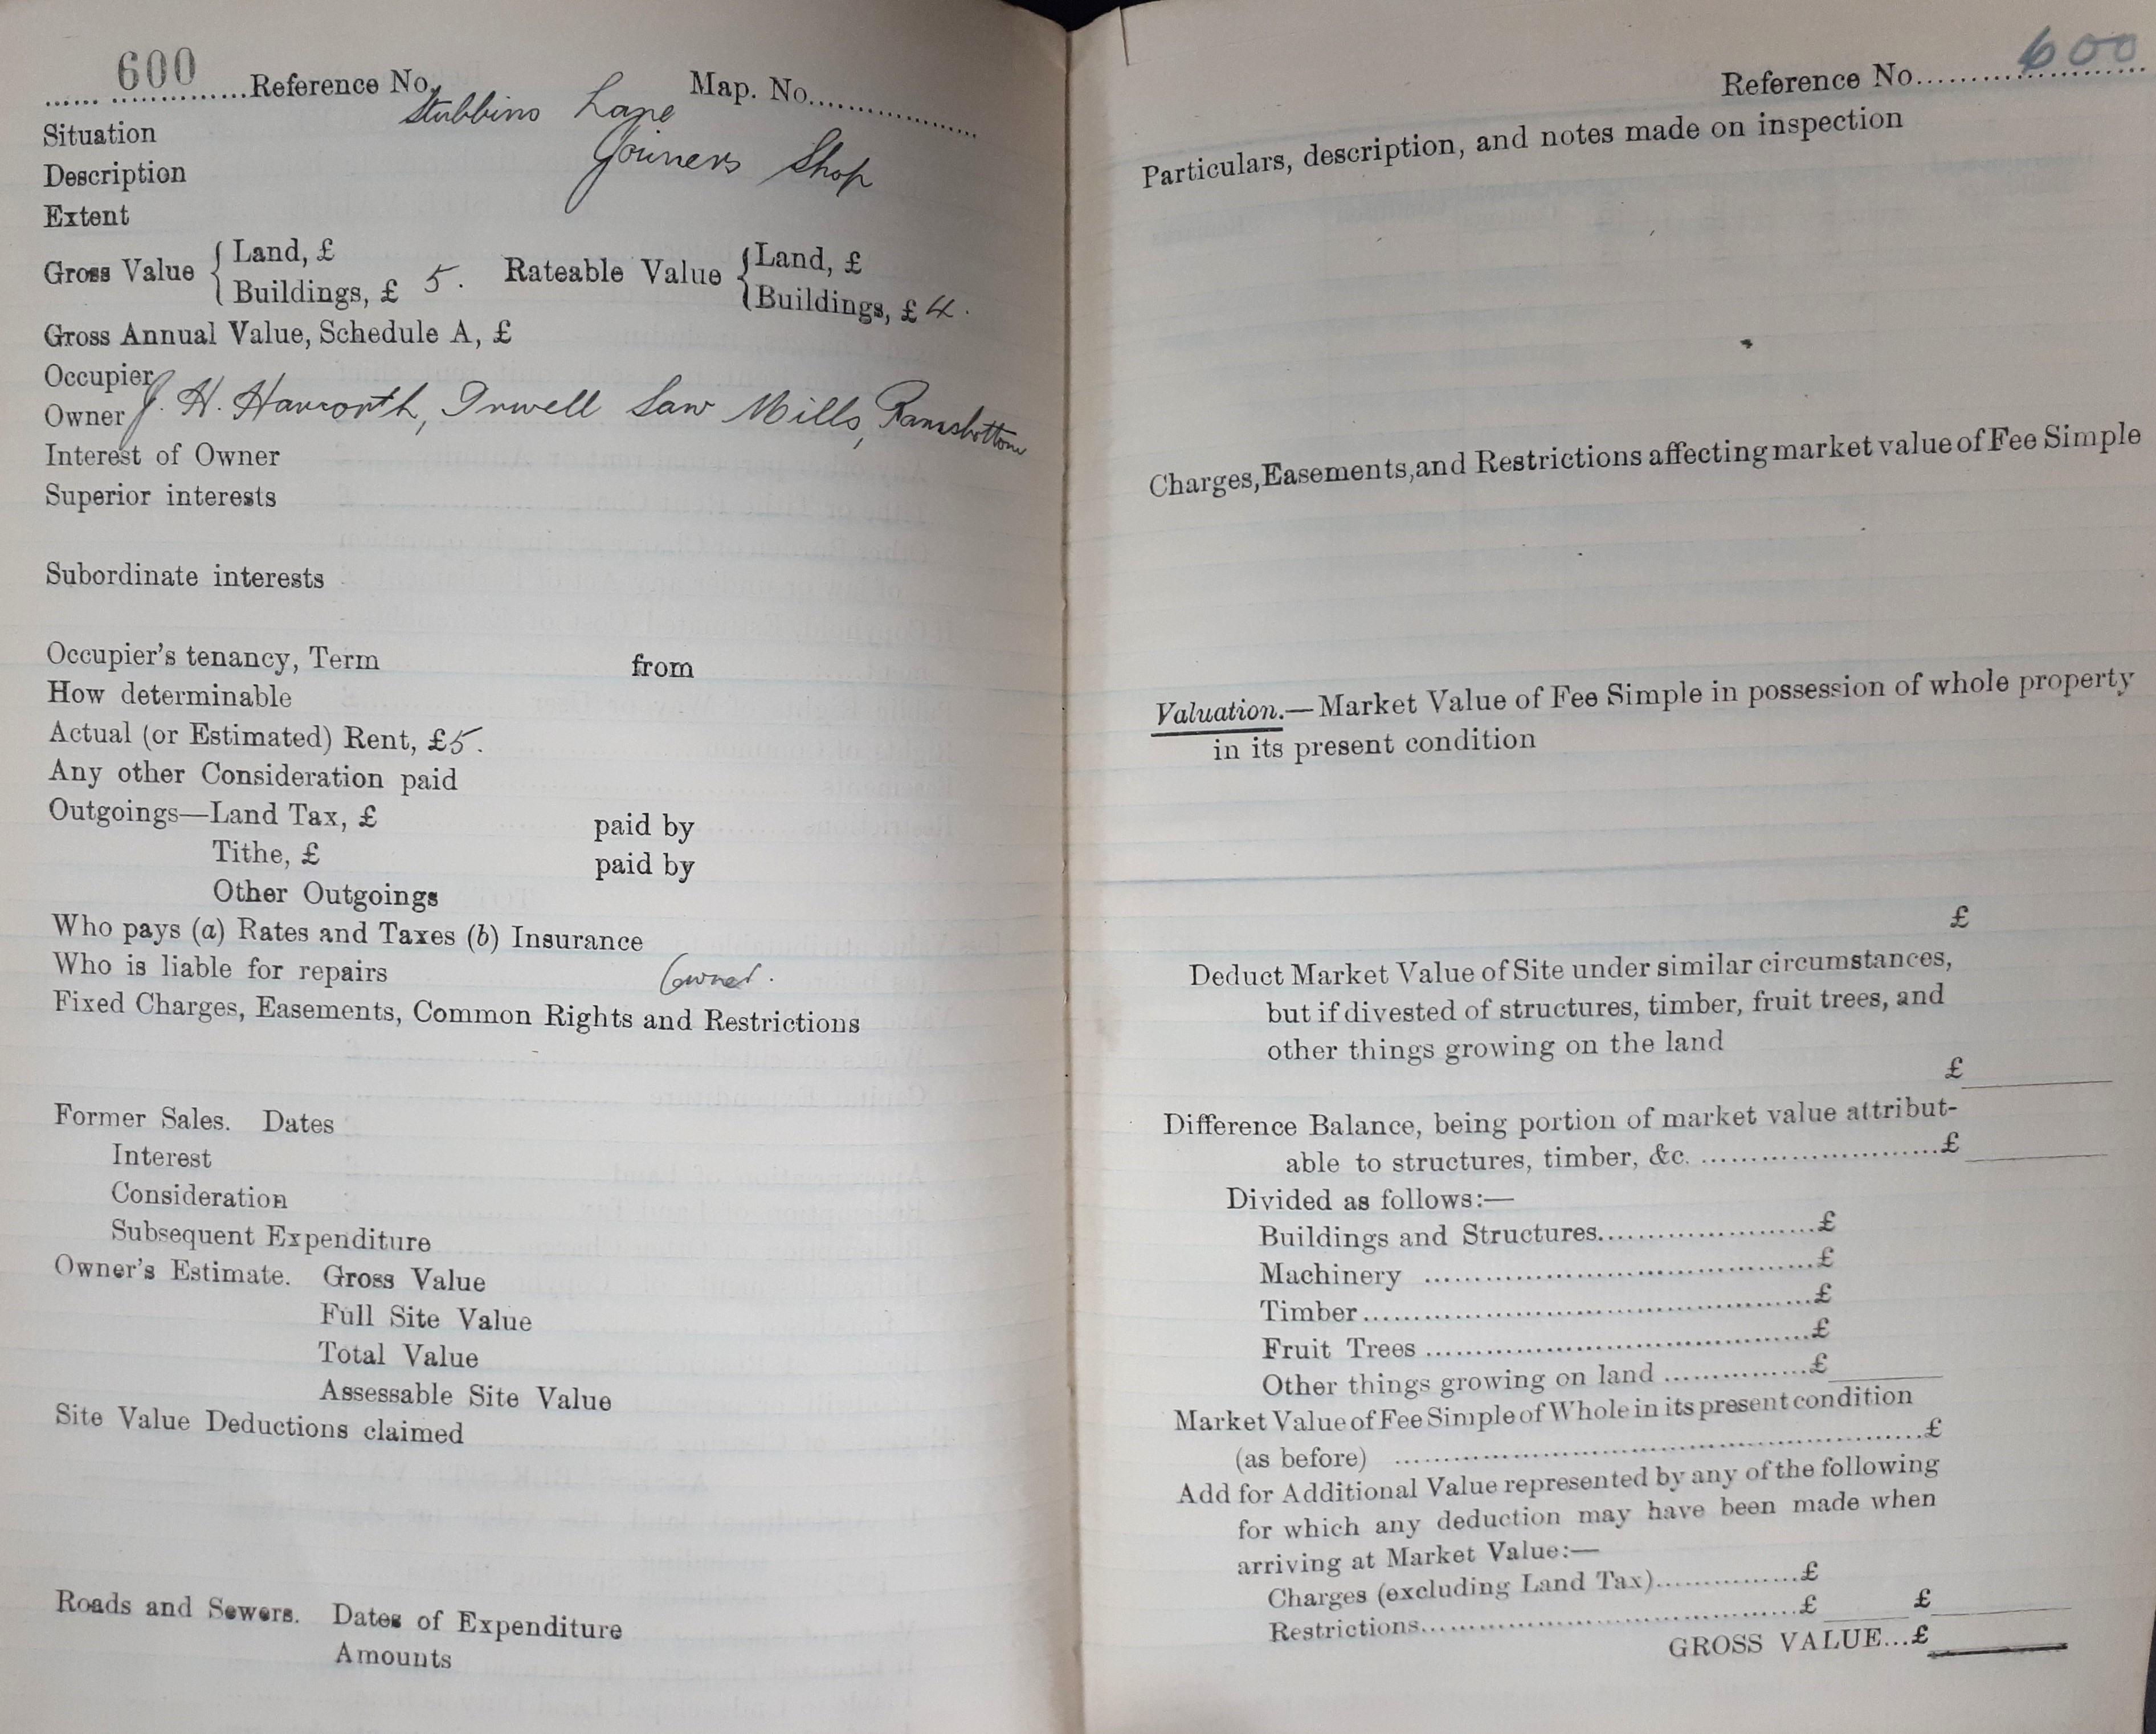 600 Reference No. Map. No.
Situation Stubbins Lane
Description Joiners Shop
Extent
Gross Value { Land, £ Rateable Value { Land, £
Buildings, £ 5. Buildings, £ 4.
Gross Annual Value, Schedule A, £
Occupier
Owner J. H. Haworth, Irwell Saw Mills, Ramsbottom
Interest of Owner
Superior interests
Subordinate interests
Occupier's tenancy, Term from
How determinable
Actual (or Estimated) Rent, £5.
Any other Consideration paid
Outgoings—Land Tax, £ paid by
Tithe, £ paid by
Other Outgoings
Who pays (a) Rates and Taxes (b) Insurance
Who is liable for repairs Owner.
Fixed Charges, Easements, Common Rights and Restrictions
Former Sales. Dates
Interest
Consideration
Subsequent Expenditure
Owner's Estimate. Gross Value
Full Site Value
Total Value
Assessable Site Value
Site Value Deductions claimed
Roads and Sewers. Dates of Expenditure
Amounts
Reference No. 600
Particulars, description, and notes made on inspection
Charges, Easements, and Restrictions affecting market value of Fee Simple
Valuation.—Market Value of Fee Simple in possession of whole property
in its present condition
£
Deduct Market Value of Site under similar circumstances,
but if divested of structures, timber, fruit trees, and
other things growing on the land
£
Difference Balance, being portion of market value attribut-
able to structures, timber, &c. £
Divided as follows:—
Buildings and Structures £
Machinery £
Timber £
Fruit Trees £
Other things growing on land £
Market Value of Fee Simple of Whole in its present condition
(as before) £
Add for Additional Value represented by any of the following
for which any deduction may have been made when
arriving at Market Value:—
Charges (excluding Land Tax) £
Restrictions £ £
GROSS VALUE...£